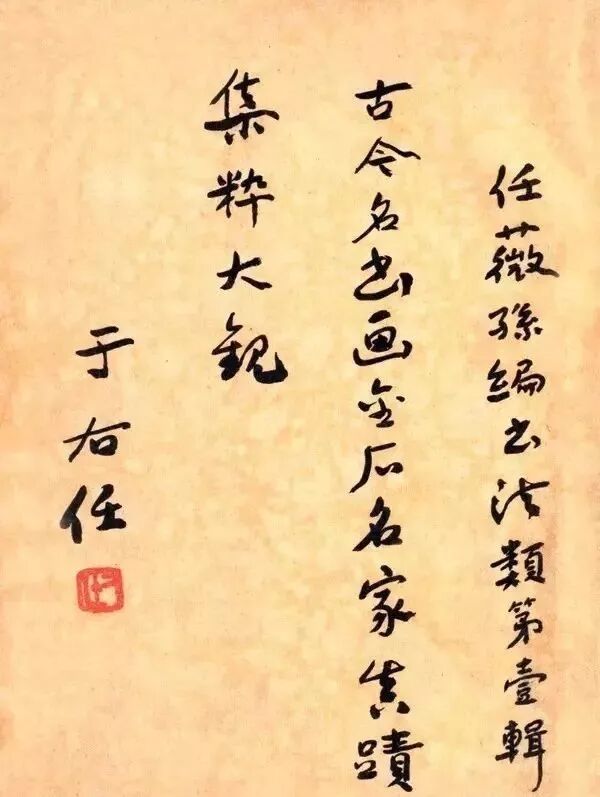 任薇孫編书法類第壹輯
古今名书画金石名家真蹟
集粹大観
于右任